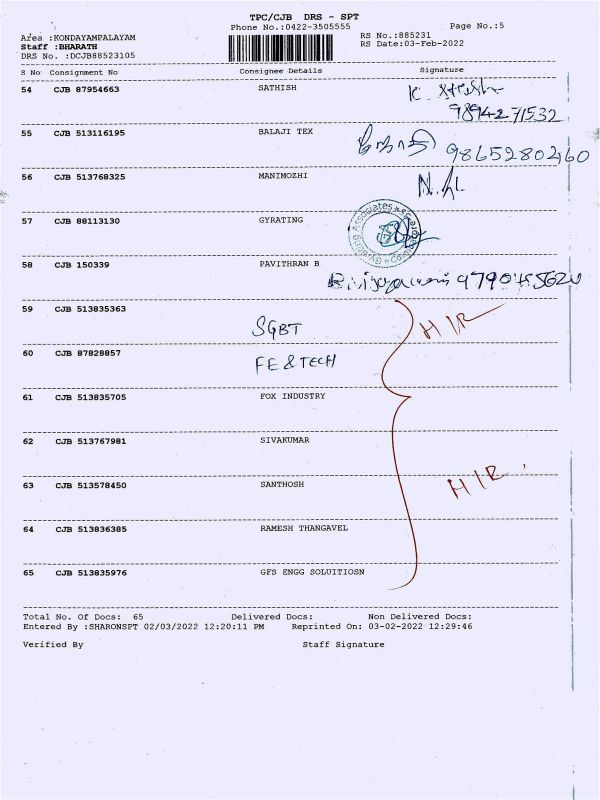 TPC/CJB DRS - SPT
Phone No.:0422-3505555
Page No.:5
Area :KONDAYAMPALAYAM
RS No.:885231
Staff :BHARATH
RS Date:03-Feb-2022
DRS No. :DCJB88523105
S No Consignment No Consignee Details Signature
54 CJB 87954663 SATHISH K.
9894271532
55 CJB 513116195 BALAJI TEX 9865280260
56 CJB 513768325 MANIMOZHI
57 CJB 88113130 GYRATING
58 CJB 150339 PAVITHRAN B
59 CJB 513835363
SGBT
H/R
60 CJB 87828857
FE & TECH
61 CJB 513835705 FOX INDUSTRY
62 CJB 513767981 SIVAKUMAR
63 CJB 513578450 SANTHOSH
H/R
64 CJB 513836385 RAMESH THANGAVEL
65 CJB 513835976 GFS ENGG SOLUITIOSN
Total No. Of Docs: 65 Delivered Docs: Non Delivered Docs:
Entered By :SHARONSPT 02/03/2022 12:20:11 PM Reprinted On: 03-02-2022 12:29:46
Verified By Staff Signature